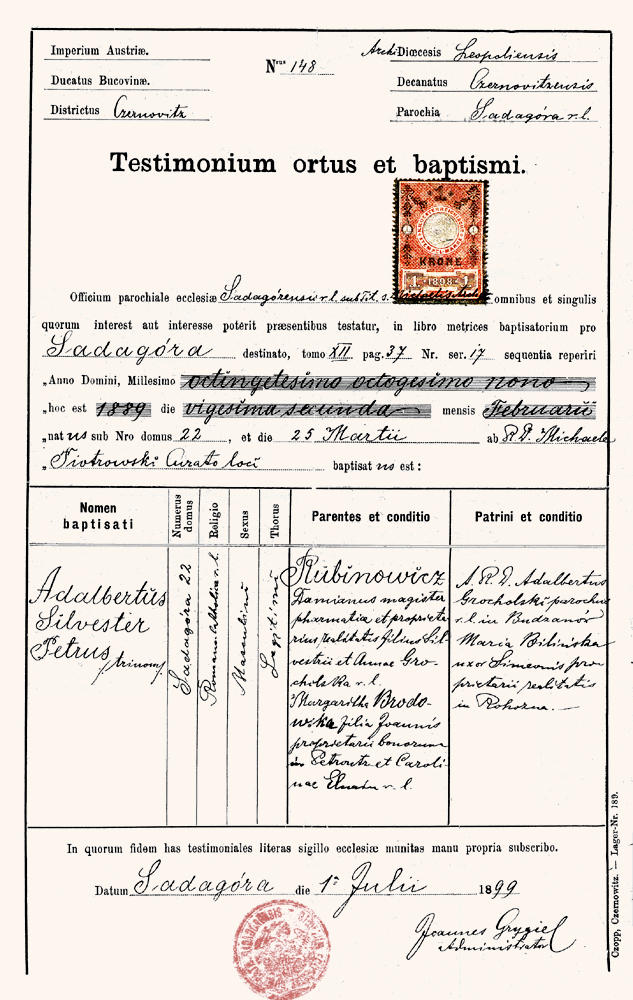 Imperium Austriæ.
Ducatus Bucovinæ.
Districtus Czernovitz
Nrus 148
Archi Diœcesis Leopoliensis
Decanatus Czernovitzensis
Parochia Sadagóra r. l.
Testimonium ortus et baptismi.
1
KRONE
1 1898 1
Officium parochiale ecclesiæ Sadagórensis r. l. sub Tit. s. omnibus et singulis
quorum interest aut interesse poterit præsentibus testatur, in libro metrices baptisatorium pro
Sadagóra destinato, tomo XII pag. 37 Nr. ser. 17 sequentia reperiri
„Anno Domini, Millesimo octingetesimo octogesimo nono
„hoc est 1889 die vigesima secunda mensis Februarii
„natus sub Nro domus 22, et die 25 Martii ab R. D. Michaele
„Piotrowski Curato loci baptisatus est:
Nomen baptisati
Numerus domus
Religio
Sexus
Thorus
Parentes et conditio
Patrini et conditio
Adalbertus
Silvester
Petrus
/trinom/
Sadagóra 22
Romano catholica r. l.
Masculini
Legitimi
Rubinowicz
Damianus magister
pharmatiæ et proprieta
rius realitatis filius Sil-
vestrii et Annae Gro-
cholska r. l.
Margaritha Brodo-
wska filia Joannis
proprietarii bonorum
in Petroutz et Caroli-
nae r. l.
A. R. D. Adalbertus
Grocholski parochus
r. l. in Budzanów
Maria Bilińska
uxor Simeonis pro
prietarii realitatis
in Rohozna.
In quorum fidem has testimoniales literas sigillo ecclesiæ munitas manu propria subscribo.
Datum Sadagóra die 1a Julii 1899
Joannes Grygiel
Administrator
Czopp, Czernowitz. — Lager-Nr. 189.